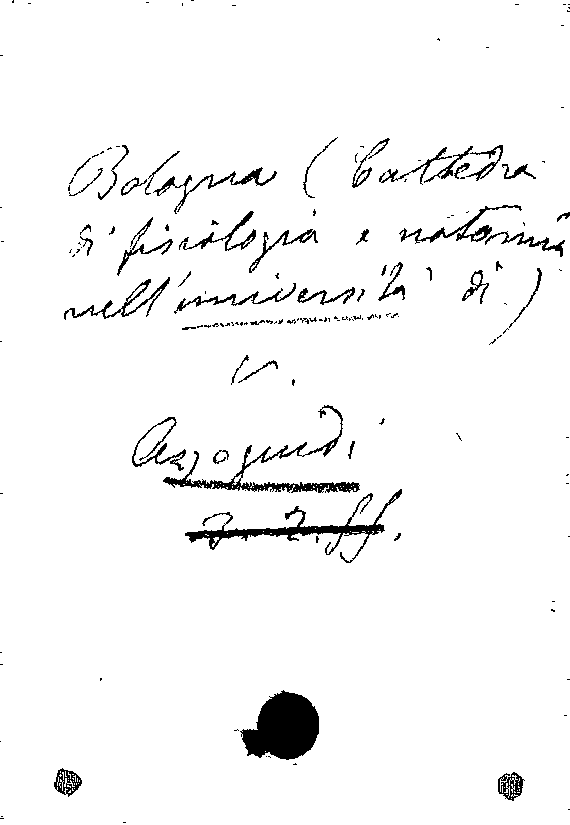 Bologna (Cattedra
di fisiologia e notomia
nell'università di)
V.
Azzoguidi